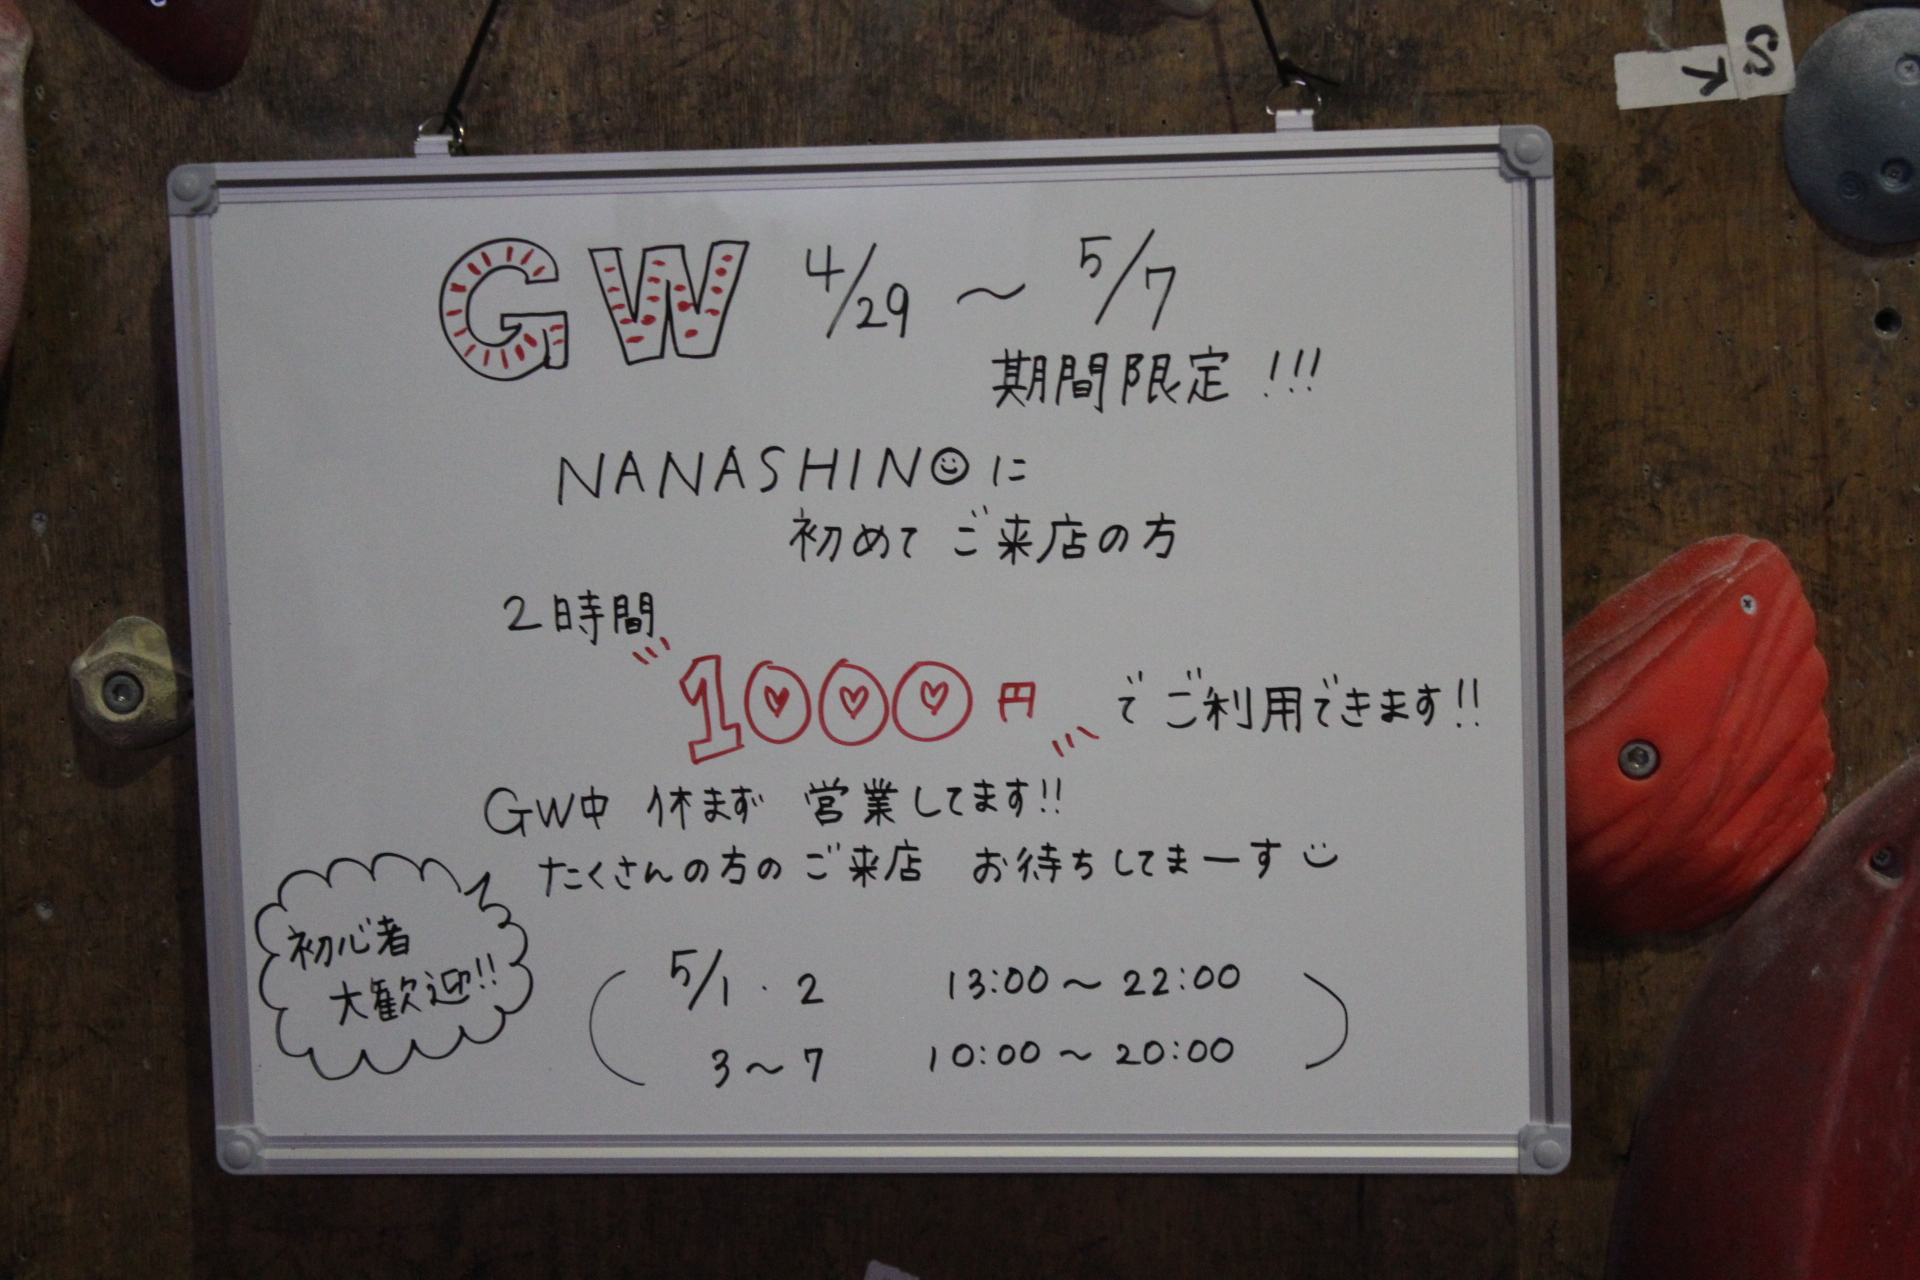 GW 4/29 〜 5/7
期間限定!!!
NANASHINOに
初めて ご来店の方
2時間
1000円 で ご利用できます!!
GW中 休まず 営業してます!!
たくさんの方の ご来店 お待ちしてまーす
初心者
大歓迎!!
(5/1・2 13:00〜22:00
3〜7 10:00〜20:00)